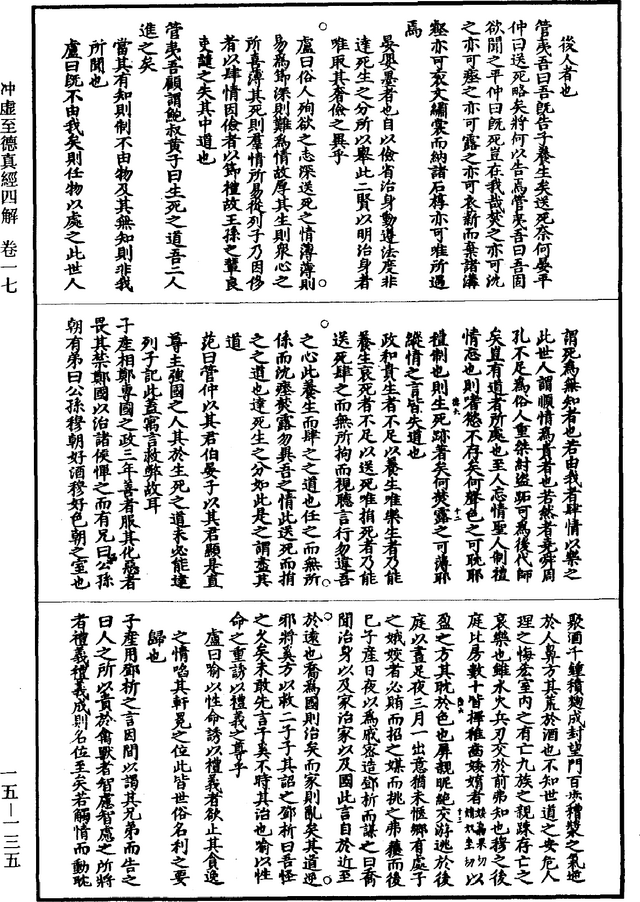 後人者也
管夷吾曰吾既告子養生矣送死奈何晏平
仲曰送死略矣將何以告焉管夷吾曰吾固
欲聞之平仲曰既死豈在我哉焚之亦可沈
之亦可瘞之亦可露之亦可衣薪而棄諸溝
壑亦可衮文繡裳而納諸石椁亦可唯所遇
焉
晏嬰墨者也自以儉省治身動遵法度非
達死生之分所以舉此二賢以明治身者
唯取其奢儉之異乎
盧曰俗人殉欲之志深送死之情薄薄則
易為節深則難為情故厚其生則衆心之
所喜薄其死則羣情所易從列子乃因侈
者以肆情因儉者以節禮故王孫之輩良
吏譴之失其中道也
管夷吾顧謂鮑叔黄子曰生死之道吾二人
進之矣
當其有知則制不由物及其無知則非我
所聞也
盧曰既不由我矣則任物以處之此世人
謂死為無知者也若由我者肆情以樂之
此世人謂順情為貴者也若然者堯舜周
孔不足為俗人重桀紂盜跖可為後代師
矣豈有道者所處也至人忘情聖人制禮
情忘也則嗜慾不存矣何聲色之可耽耶
禮制也則生死跡著矣何焚露之可薄耶
縱情之言皆失道也
政和貴生者不足以養生唯樂生者乃能
養生哀死者不足以送死唯捐死者乃能
送死肆之而無所拘而視聽言行勿違吾
之心此養生而肆之之道也任之而無所
係而沈瘞焚露勿與吾之情此送死而捐
之之道也達死生之分如此是之謂盡其
道
范曰管仲以其君伯晏子以其君顯是直
尊主強國之人其於生死之道未必能達
列子記此蓋寓言救弊故耳
子產相鄭專國之政三年善者服其化惡者
畏其禁鄭國以治諸侯憚之而有兄曰公孫
朝有弟曰公孫穆朝好酒穆好色朝之室也
聚酒千鍾積麴成封望門百步糟漿之氣逆
於人鼻方其荒於酒也不知世道之安危人
理之悔吝室内之有亡九族之親踈存亡之
哀樂也雖水火兵刃交於前弗知也穆之後
庭比房數十皆擇稚齒婑媠者以
盈之方其耽於色也屏親昵絶交游逃於後
庭以晝足夜三月一出意猶未愜鄉有處子
之娥姣者必賄而招之媒而挑之弗獲而後
已子產日夜以為戚密造鄧析而謀之曰喬
聞治身以及家治家以及國此言自於近至
於遠也喬為國則治矣而家則亂矣其道逆
邪將奚方以救二子子其詔之鄧析曰吾怪
之久矣未敢先言子奚不時其治也喻以性
命之重誘以禮義之尊乎
盧曰喻以性命誘以禮義者欲止其貪逸
之情啗其軒冕之位此皆世俗名利之要
歸也
子產用鄧析之言因間以謁其兄弟而告之
曰人之所以貴於禽獸者智慮智慮之所將
者禮義禮義成則名位至矣若觸情而動耽
冲虛至德真經四解 卷一七
一五—一三五